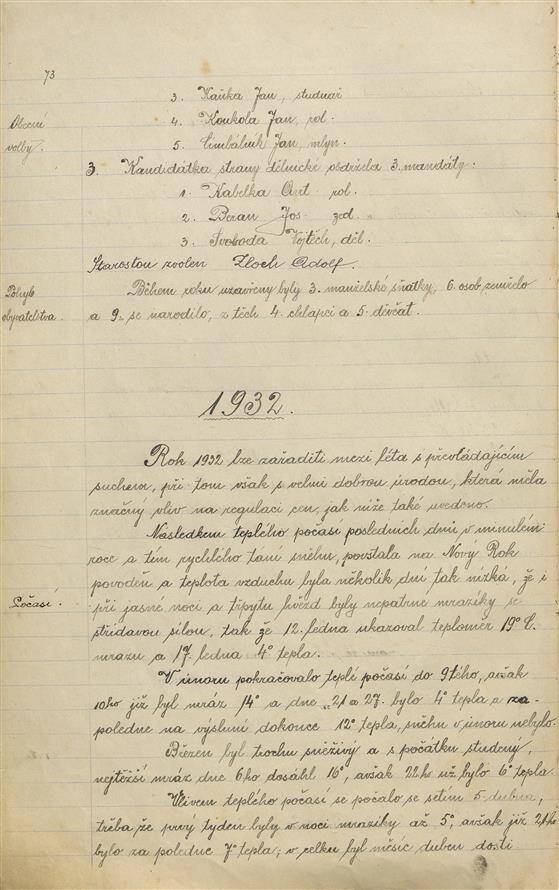 73
3. Kaňka Jan, studnař
Obecní
volby.
4. Koukola Jan, rol.
5. Cimbálník Jan, mlyn.
3. Kandidátka strany dělnické obdržela 3. mandáty:
1. Kabelka Ant. rol.
2. Beran Jos. zed. "
3. Svoboda Vojtěch, děl.
Starostou zvolen Zloch Adolf.
Pohyb
obyvatelstva.
Během roku uzavřeny byly 3. manželské sňatky, 6. osob zemřelo
a 9. se narodilo, z těch 4. chlapci a 5. děvčat.
1932.
Rok 1932 lze zařaditi mezi léta s převládajícím
suchem, při tom však s velmi dobrou úrodou, která měla
značný vliv na regulaci cen, jak níže také uvedeno.
Následkem teplého počasí posledních dnů v minulém
roce a tím rychlého tání sněhu, povstala na Nový Rok
povodeň a teplota vzduchu byla několik dní tak nízká, že i
Počasí.
při jasné noci a třpytu hvězd byly nepatrné mrazíky se
střídavou silou, tak že 12. ledna ukazoval teploměr 19° C.
mrazu a 17. ledna 4° tepla.
V únoru pokračovalo teplé počasí do 9tého, avšak
10ho již byl mráz 14° a dne 21 a 27. bylo 4° tepla a za-
poledne na výsluní dokonce 12° tepla, sněhu v únoru nebylo.
Březen byl trochu sněživý a s počátku studený,
nejtěžší mráz dne 6ho dosáhl 16°, avšak 22ho už bylo 6° tepla.
Vlivem teplého počasí se počalo se setím 5 dubna,
třeba že prvý týden byly v noci mrazíky až 5°, avšak již 21ho
bylo za poledne 7° tepla; v celku byl měsíc duben dosti